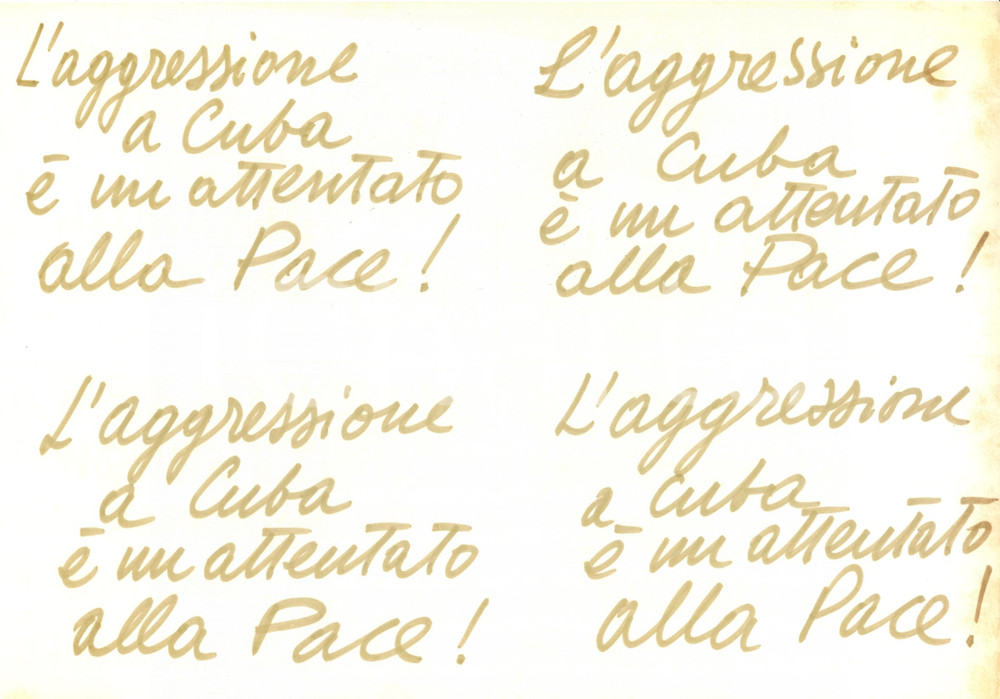 L'aggressione
a Cuba
è un attentato
alla Pace!
L'aggressione
a Cuba
è un attentato
alla Pace!
L'aggressione
a Cuba
è un attentato
alla Pace!
L'aggressione
a Cuba
è un attentato
alla Pace!